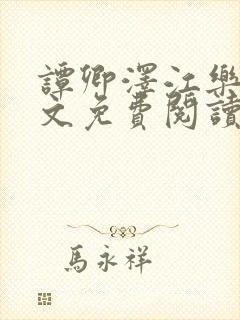 譚卿澤江樂
文免費閱讀
馬永祥